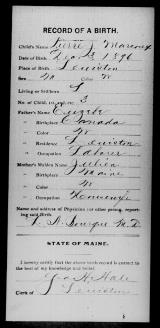 RECORD OF A BIRTH.
Child's Name Pierre J
Date of Birth, Dec 3, 1896
Place of Birth, Lewiston
Sex M Color W
Living or Stillborn L
No. of Child, 1st, 2d, etc. 3
Father's Name
" Birthplace Canada
" Color W
" Residence Lewiston
" Occupation Laborer
Mother's Maiden Name
" Birthplace Maine
" Color W
" Occupation Housewife
Name and address of Physician (or other person) reporting said Birth.
M.D.
STATE OF MAINE.
I hereby certify that the above birth record is correct to the best of my knowledge and belief.
Clerk of Lewiston